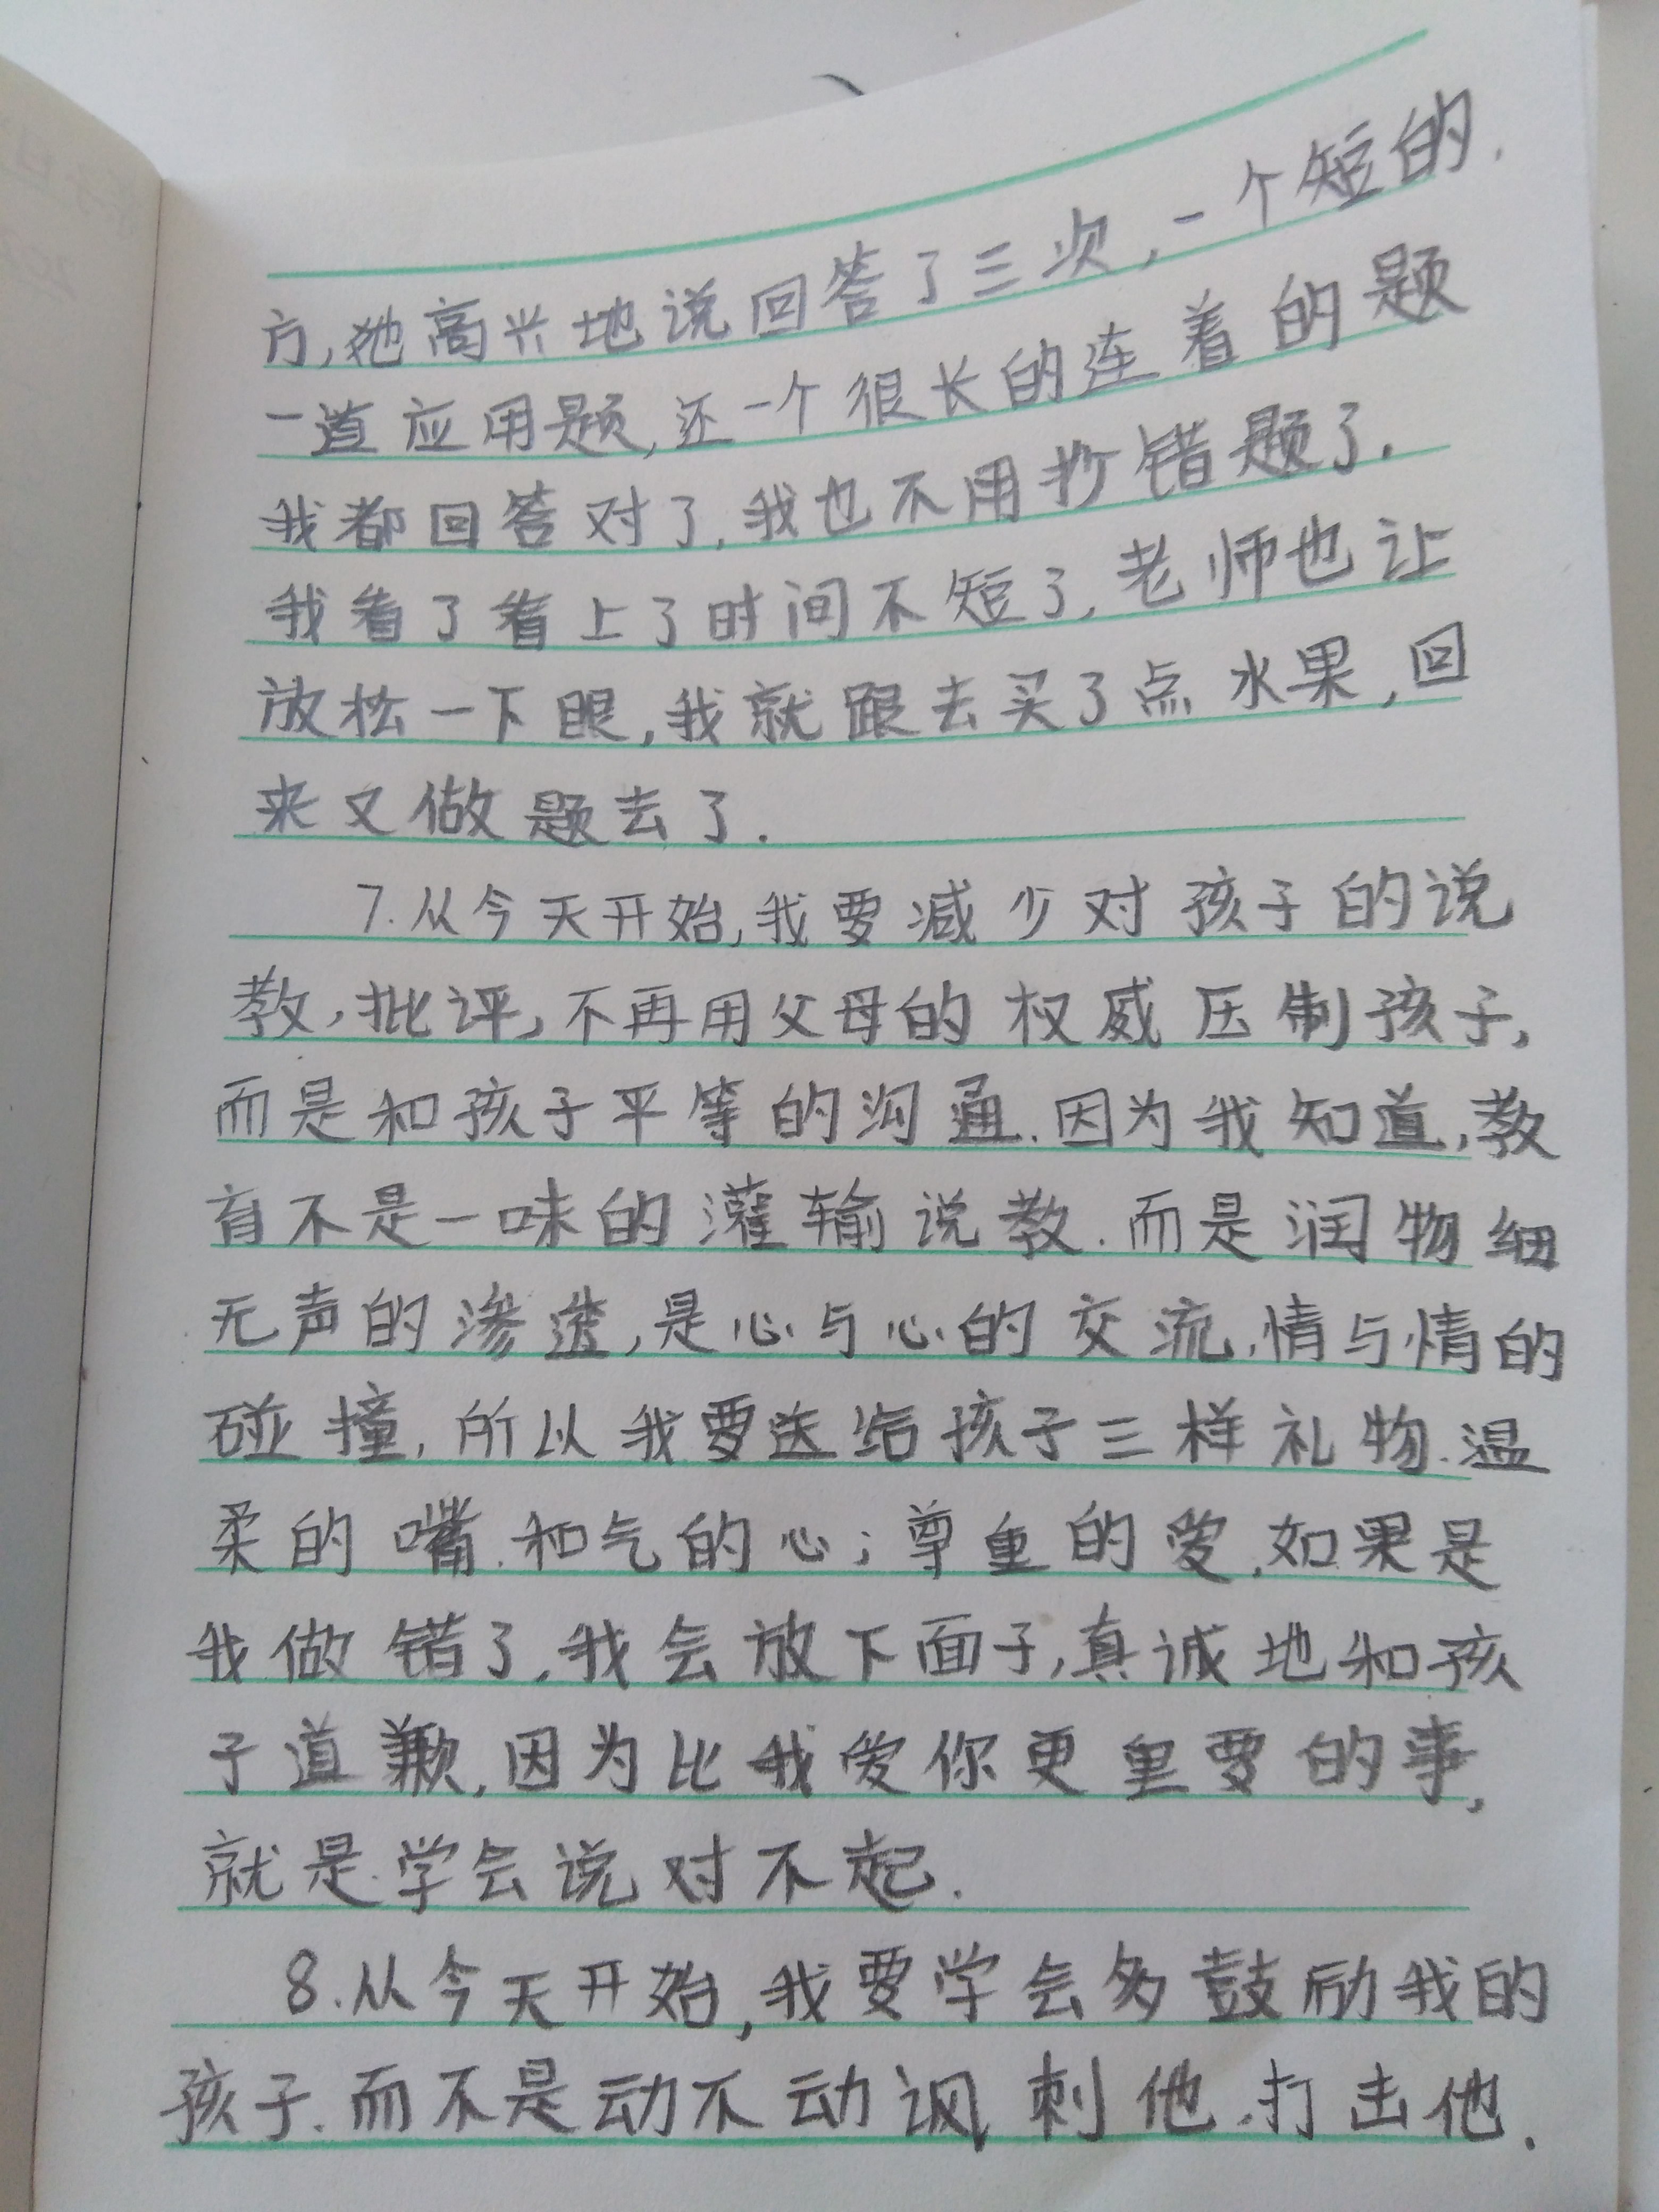 方,她高兴地说回答了三次,一个短的.
一道应用题,还一个很长的连着的题
我都回答对了,我也不用抄错题了.
我看了看上了时间不短了,老师也让
放松一下眼,我就跟去买了点水果,回
来又做题去了.
7.从今天开始,我要减少对孩子的说
教,批评,不再用父母的权威压制孩子,
而是和孩子平等的沟通.因为我知道,教
育不是一味的灌输说教.而是润物细
无声的渗透,是心与心的交流,情与情的
碰撞,所以我要送给孩子三样礼物.温
柔的嘴.和气的心;尊重的爱.如果是
我做错了,我会放下面子,真诚地和孩
子道歉,因为比我爱你更重要的事,
就是学会说对不起.
8.从今天开始,我要学会多鼓励我的
孩子.而不是动不动讽刺他.打击他.